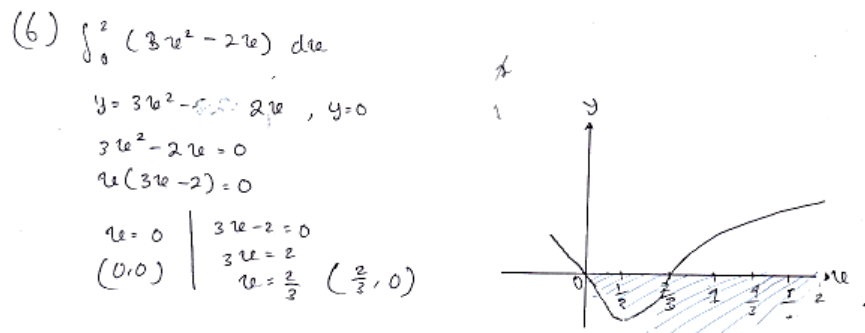 (6) ∫₀² (3x² - 2x) dx
y = 3x² - 2x , y = 0
3x² - 2x = 0
x(3x - 2) = 0
x = 0 | 3x - 2 = 0
(0,0) | 3x = 2
x = 2/3 (2/3, 0)
y
0 1/2 2/3 1 4/3 2 x